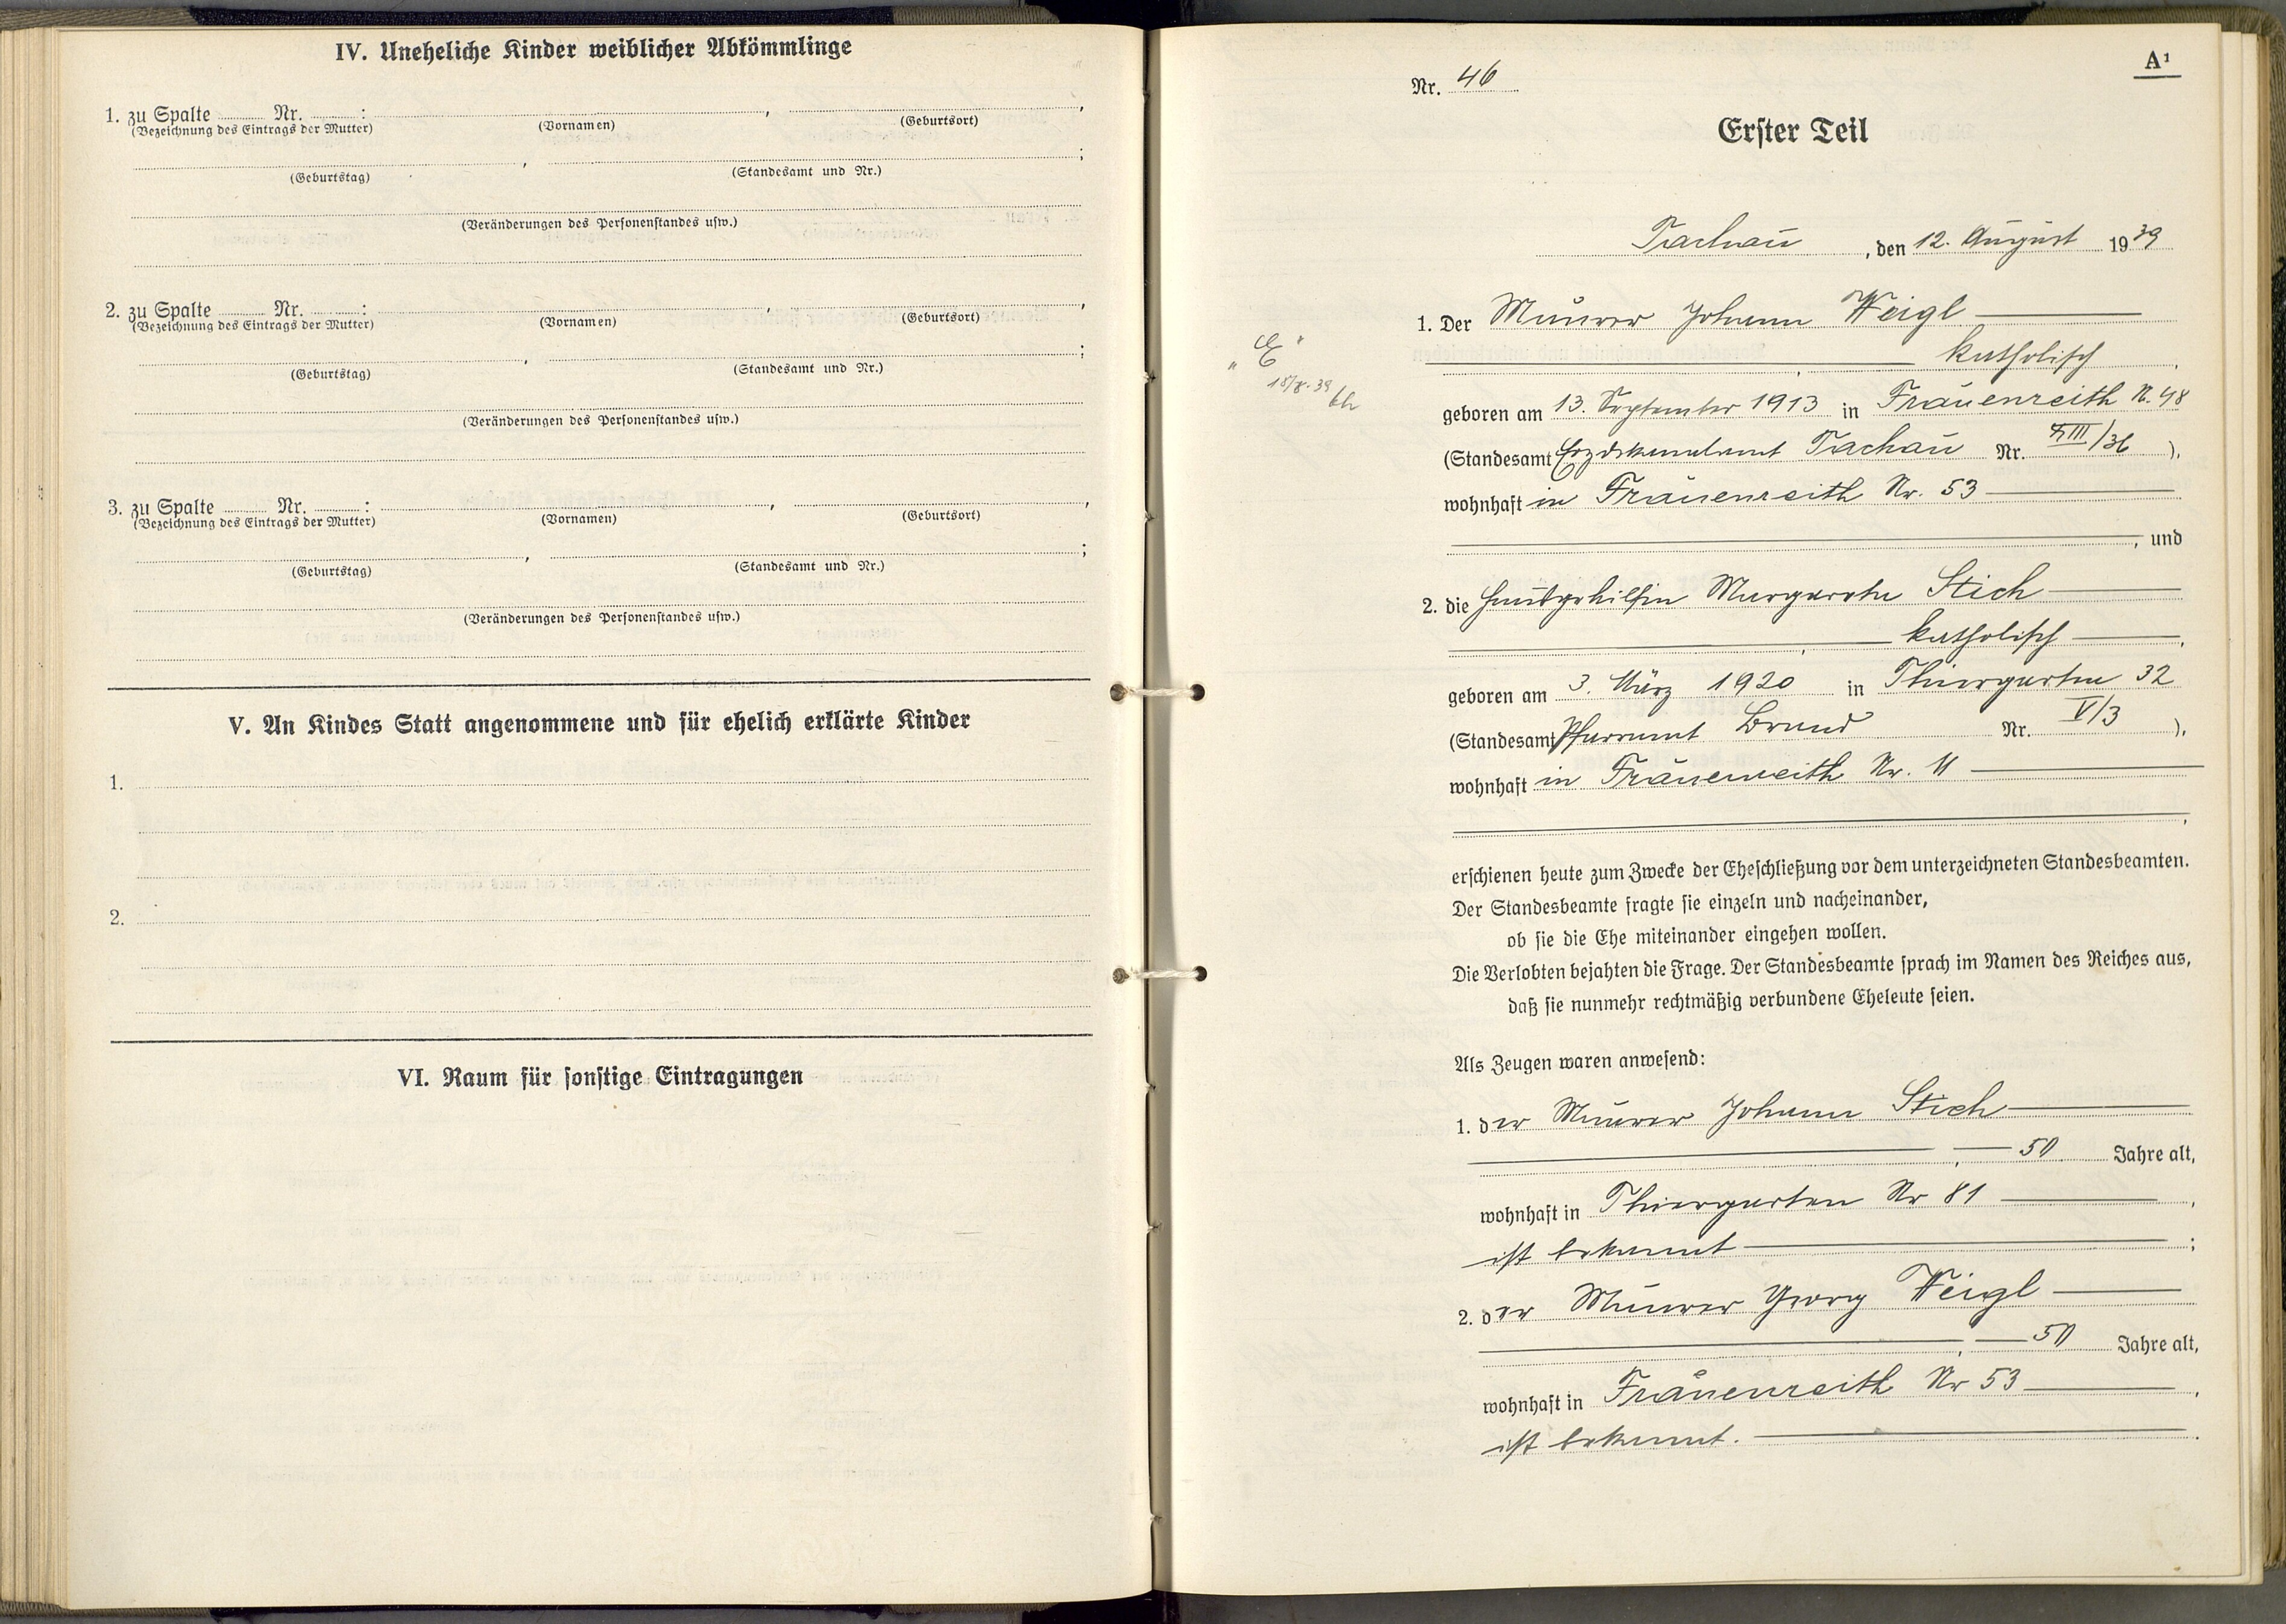 IV. Uneheliche Kinder weiblicher Abkömmlinge
1. zu Spalte ........ Nr. ........:
(Bezeichnung des Eintrags der Mutter) (Vornamen) (Geburtsort)
(Geburtstag) (Standesamt und Nr.)
(Veränderungen des Personenstandes usw.)
2. zu Spalte ........ Nr. ........:
(Bezeichnung des Eintrags der Mutter) (Vornamen) (Geburtsort)
(Geburtstag) (Standesamt und Nr.)
(Veränderungen des Personenstandes usw.)
3. zu Spalte ........ Nr. ........:
(Bezeichnung des Eintrags der Mutter) (Vornamen) (Geburtsort)
(Geburtstag) (Standesamt und Nr.)
(Veränderungen des Personenstandes usw.)
V. An Kindes Statt angenommene und für ehelich erklärte Kinder
1.
2.
VI. Raum für sonstige Eintragungen
A¹
Nr. 46
Erster Teil
Tachau, den 12. August 1939
1. Der Maurer Johann Weigl
„E"
katholisch
geboren am 13. September 1913 in Frauenreith N. 48
(Standesamt Erzdekanalamt Tachau Nr. XIII/36),
wohnhaft in Frauenreith Nr. 53
, und
2. die Hausgehilfin Margarete Stich
katholisch,
geboren am 3. März 1920 in Thiergarten 32
(Standesamt Pfarramt Brand Nr. V/3),
wohnhaft in Frauenreith Nr. 11
erschienen heute zum Zwecke der Eheschließung vor dem unterzeichneten Standesbeamten.
Der Standesbeamte fragte sie einzeln und nacheinander,
ob sie die Ehe miteinander eingehen wollen.
Die Verlobten bejahten die Frage. Der Standesbeamte sprach im Namen des Reiches aus,
daß sie nunmehr rechtmäßig verbundene Eheleute seien.
Als Zeugen waren anwesend:
1. der Maurer Johann Stich
, 50 Jahre alt,
wohnhaft in Thiergarten Nr 81,
ist bekannt;
2. der Maurer Georg Weigl
, 50 Jahre alt,
wohnhaft in Frauenreith Nr 53,
ist bekannt.